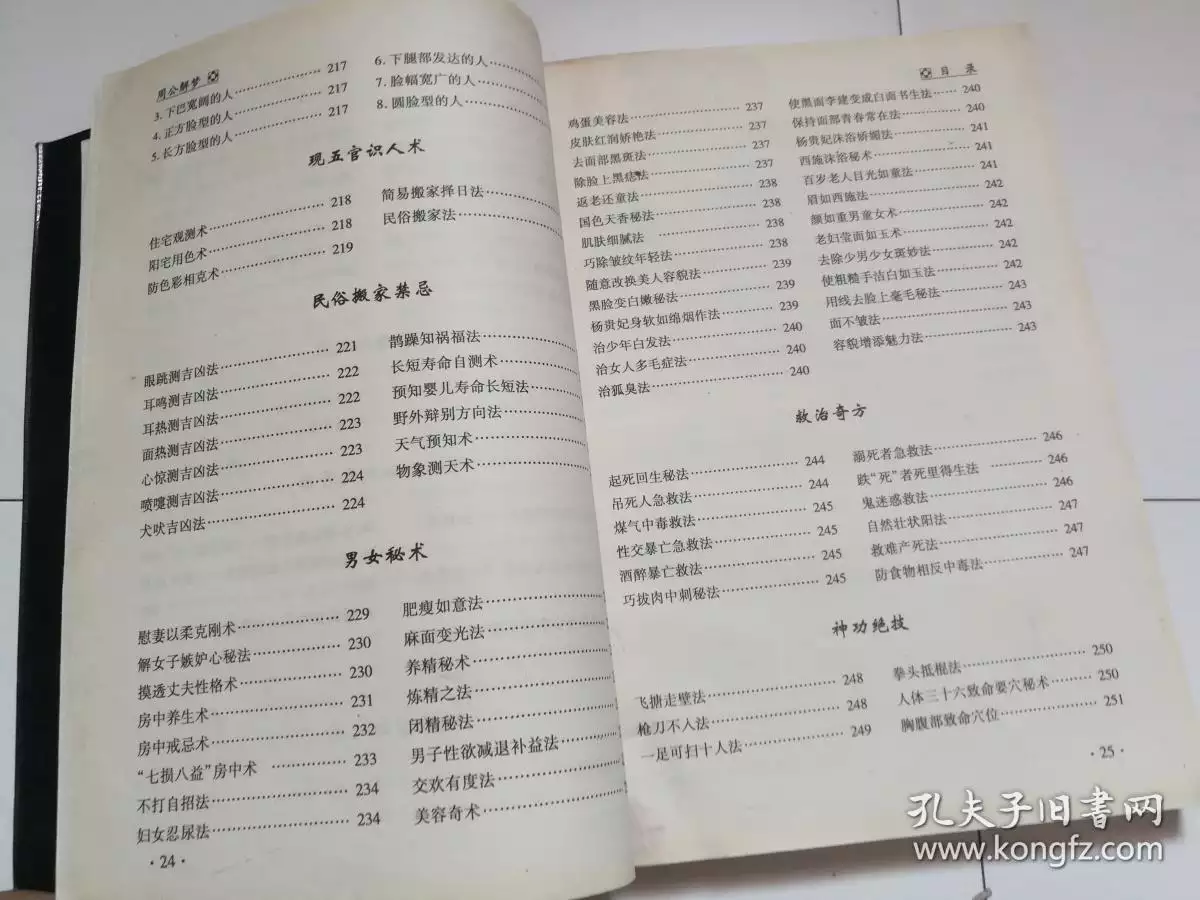 周公解梦
3. 下巴宽阔的人 217
4. 正方脸型的人 217
5. 长方脸型的人 217
6. 下腿部发达的人
7. 脸幅宽广的人
8. 圆脸型的人
现五官识人术
住宅观测术 218
阳宅用色术 218
防色彩相克术 219
简易搬家择日法
民俗搬家法
民俗搬家禁忌
眼跳测吉凶法 221
耳鸣测吉凶法 222
耳热测吉凶法 222
面热测吉凶法 223
心惊测吉凶法 223
喷嚏测吉凶法 224
犬吠吉凶法 224
鹊躁知祸福法
长短寿命自测术
预知婴儿寿命长短法
野外辩别方向法
天气预知术
物象测天术
男女秘术
慰妻以柔克刚术 229
解女子嫉妒心秘法 230
摸透丈夫性格术 230
房中养生术 231
房中戒忌术 232
“七损八益”房中术 233
不打自招法 234
妇女忍尿法 234
肥瘦如意法
麻面变光法
养精秘术
炼精之法
闭精秘法
男子性欲减退补益法
交欢有度法
美容奇术
·24·
目 录
鸡蛋美容法 237
皮肤红润娇艳法 237
去面部黑斑法 237
除脸上黑痣法 237
返老还童法 238
国色天香秘法 238
肌肤细腻法 238
巧除皱纹年轻法 238
随意改换美人容貌法 239
黑脸变白嫩秘法 239
杨贵妃身软如绵烟作法 239
治少年白发法 240
治女人多毛症法 240
治狐臭法 240
使黑面李建变成白面书生法 240
保持面部青春常在法 240
杨贵妃沐浴娇媚法 241
西施沫浴秘术 241
百岁老人目光如童法 241
眉如西施法 242
颜如重男童女术 242
老妇莹面如玉术 242
去除少男少女斑妙法 242
使粗糙手洁白如玉法 242
用线去脸上毫毛秘法 243
面不皱法 243
容貌增添魅力法 243
救治奇方
起死回生秘法 244
吊死人急救法 244
煤气中毒救法 245
性交暴亡急救法 245
酒醉暴亡救法 245
巧拔肉中刺秘法 245
溺死者急救法 246
跌“死”者死里得生法 246
鬼迷惑救法 246
自然壮状阳法 247
救难产死法 247
防食物相反中毒法 247
神功绝技
飞搪走壁法 248
枪刀不入法 248
一足可扫十人法 249
拳头抵棍法 250
人体三十六致命要穴秘术 250
胸腹部致命穴位 251
·25·
孔夫子旧书网
www.kongfz.com